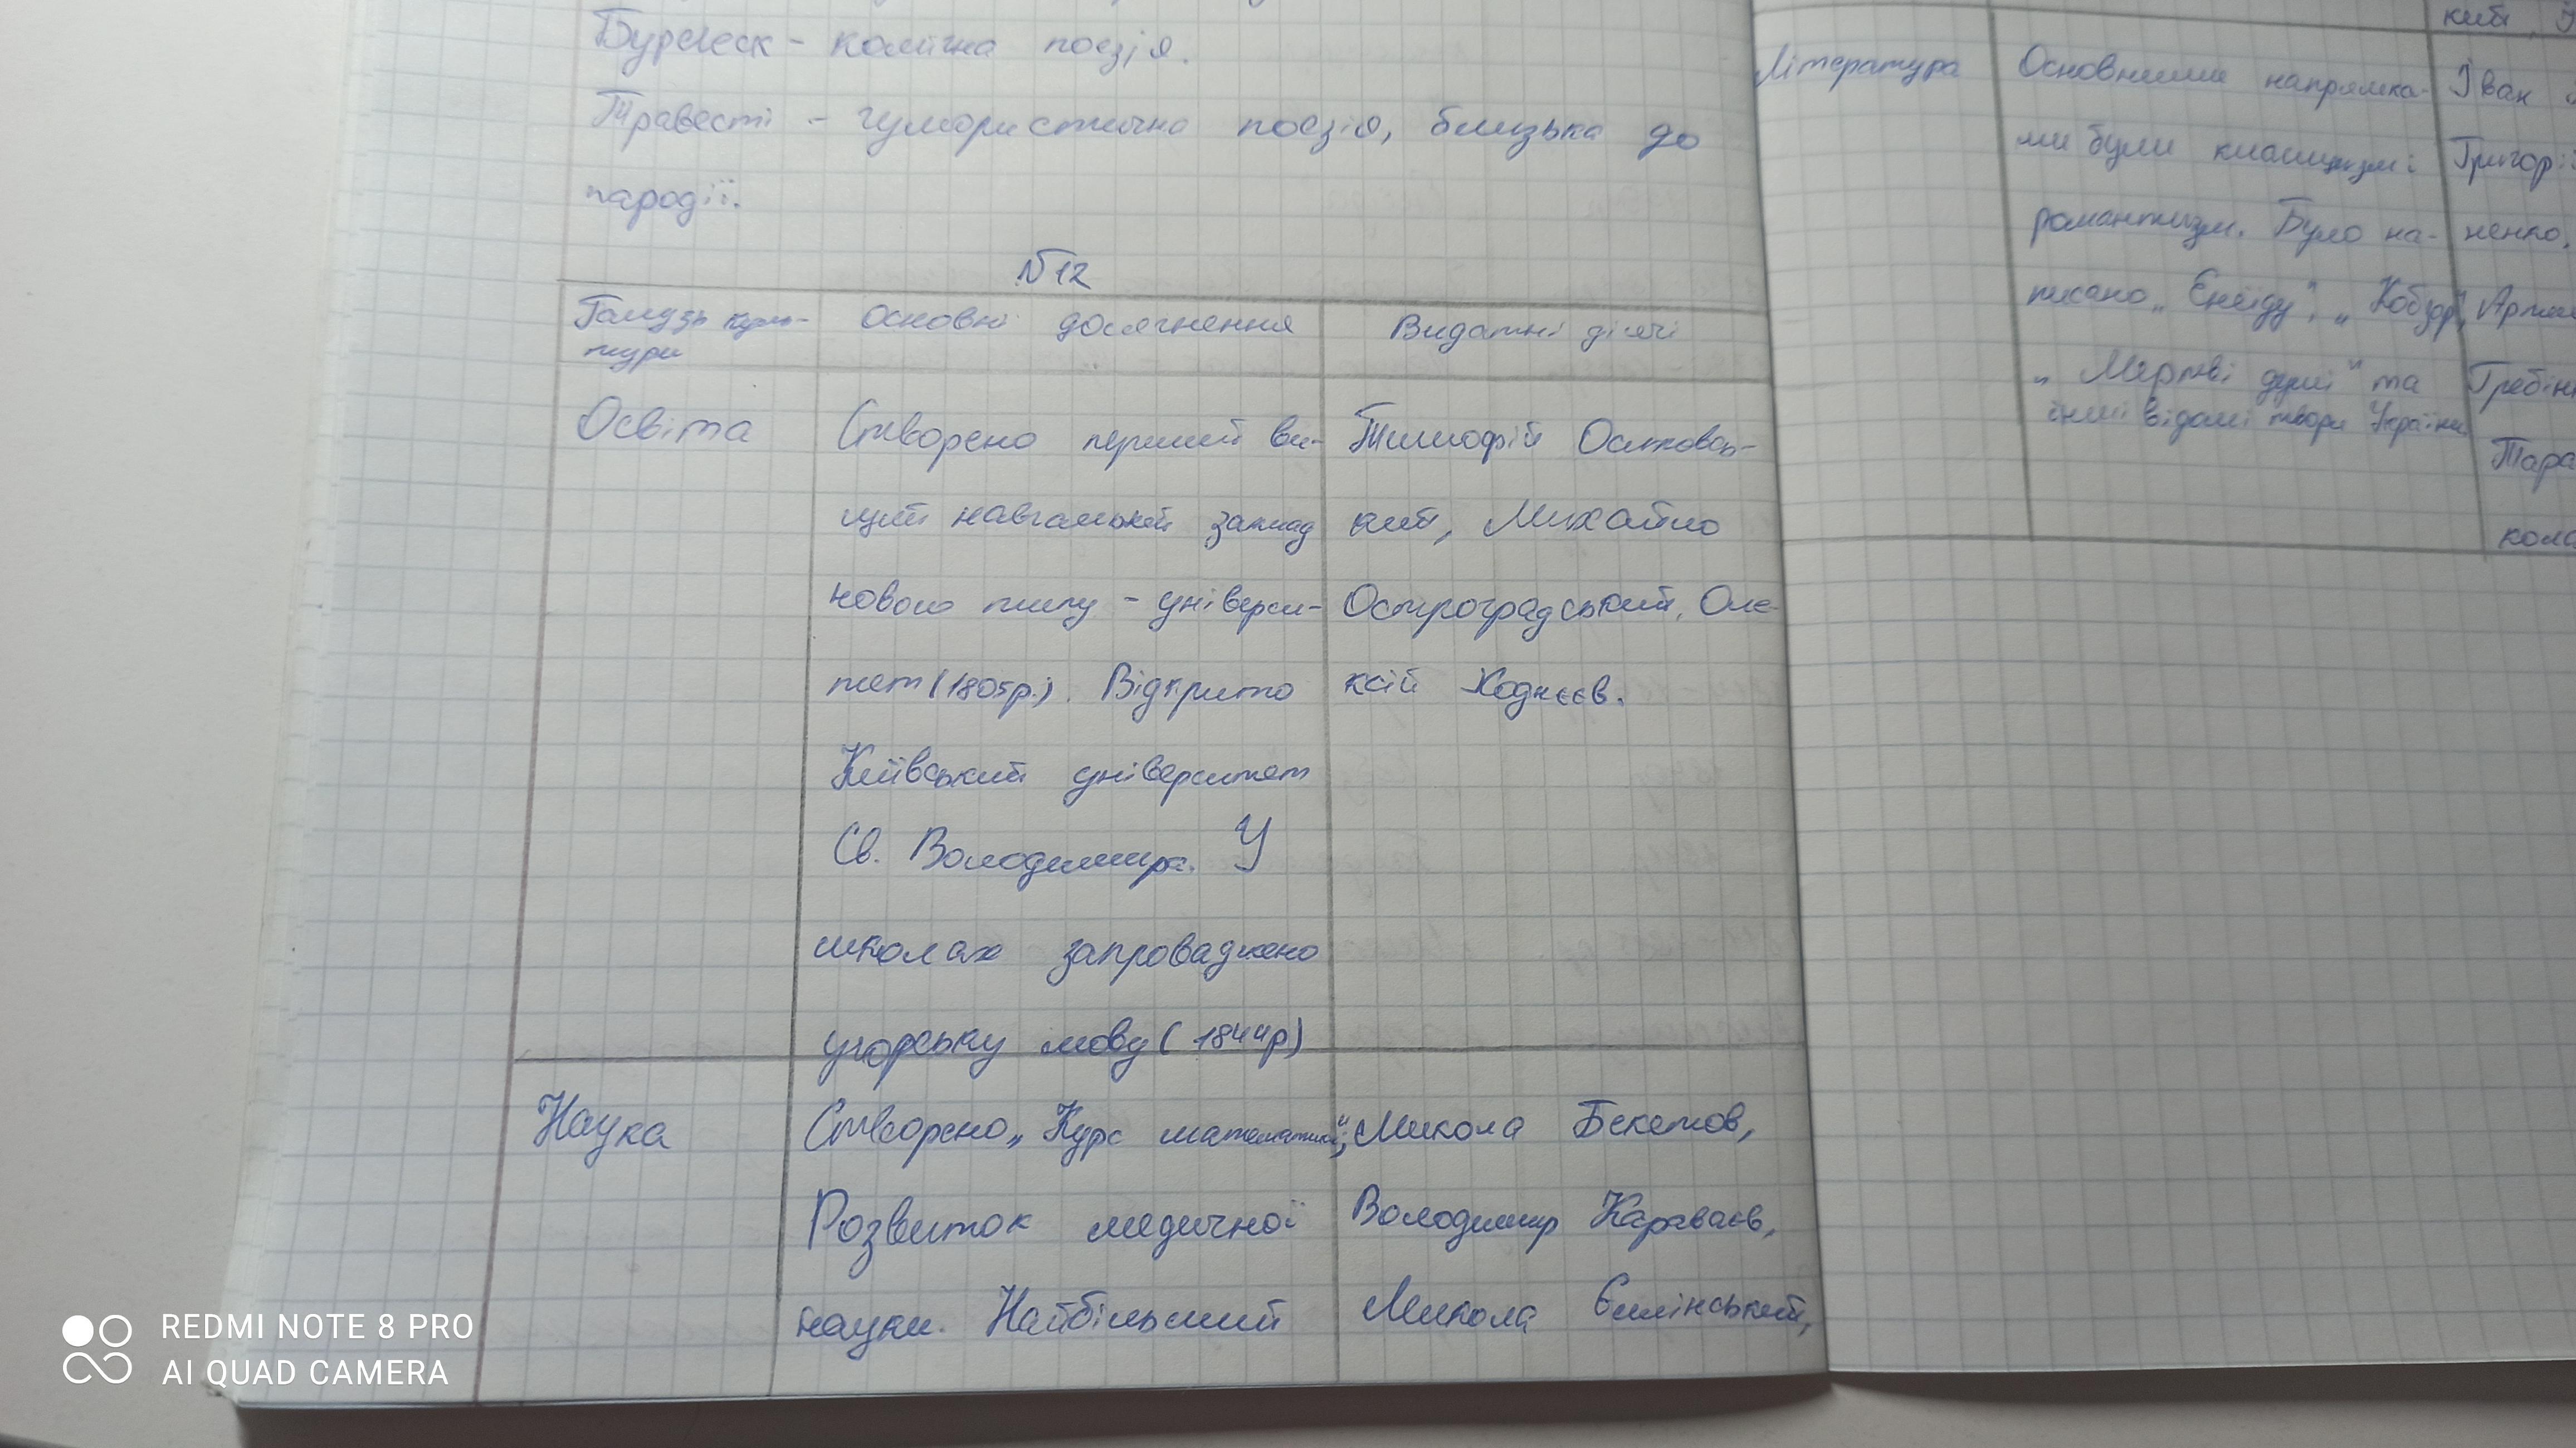 Бурлеск - комічна поезія.
Травесті - гумористична поезія, близька до
пародії.
№12
Галузь куль-
тури
Основні досягнення
Видатні діячі
Освіта
Створено перший ви-
щий навчальний заклад
нового типу - універси-
тет (1805р.). Відкрито
Київський університет
Св. Володимира. У
школах запроваджено
угорську мову (1844р)
Тимофій Осиповсь-
кий, Михайло
Остроградський, Оле-
ксій Ходнєєв.
Наука
Створено „Курс математики",
Розвиток медичної
науки. Найбільший
Микола Бекетов,
Володимир Караваєв,
Микола Єлінський,
кий,
Література
Основними напрямка-
ми були класицизм і
романтизм. Було на-
писано „Енеїду", „Кобзар",
„Мертві душі" та
інші відомі твори України.
Іван
Григорі
ненко,
Гребін
Тара
REDMI NOTE 8 PRO
AI QUAD CAMERA